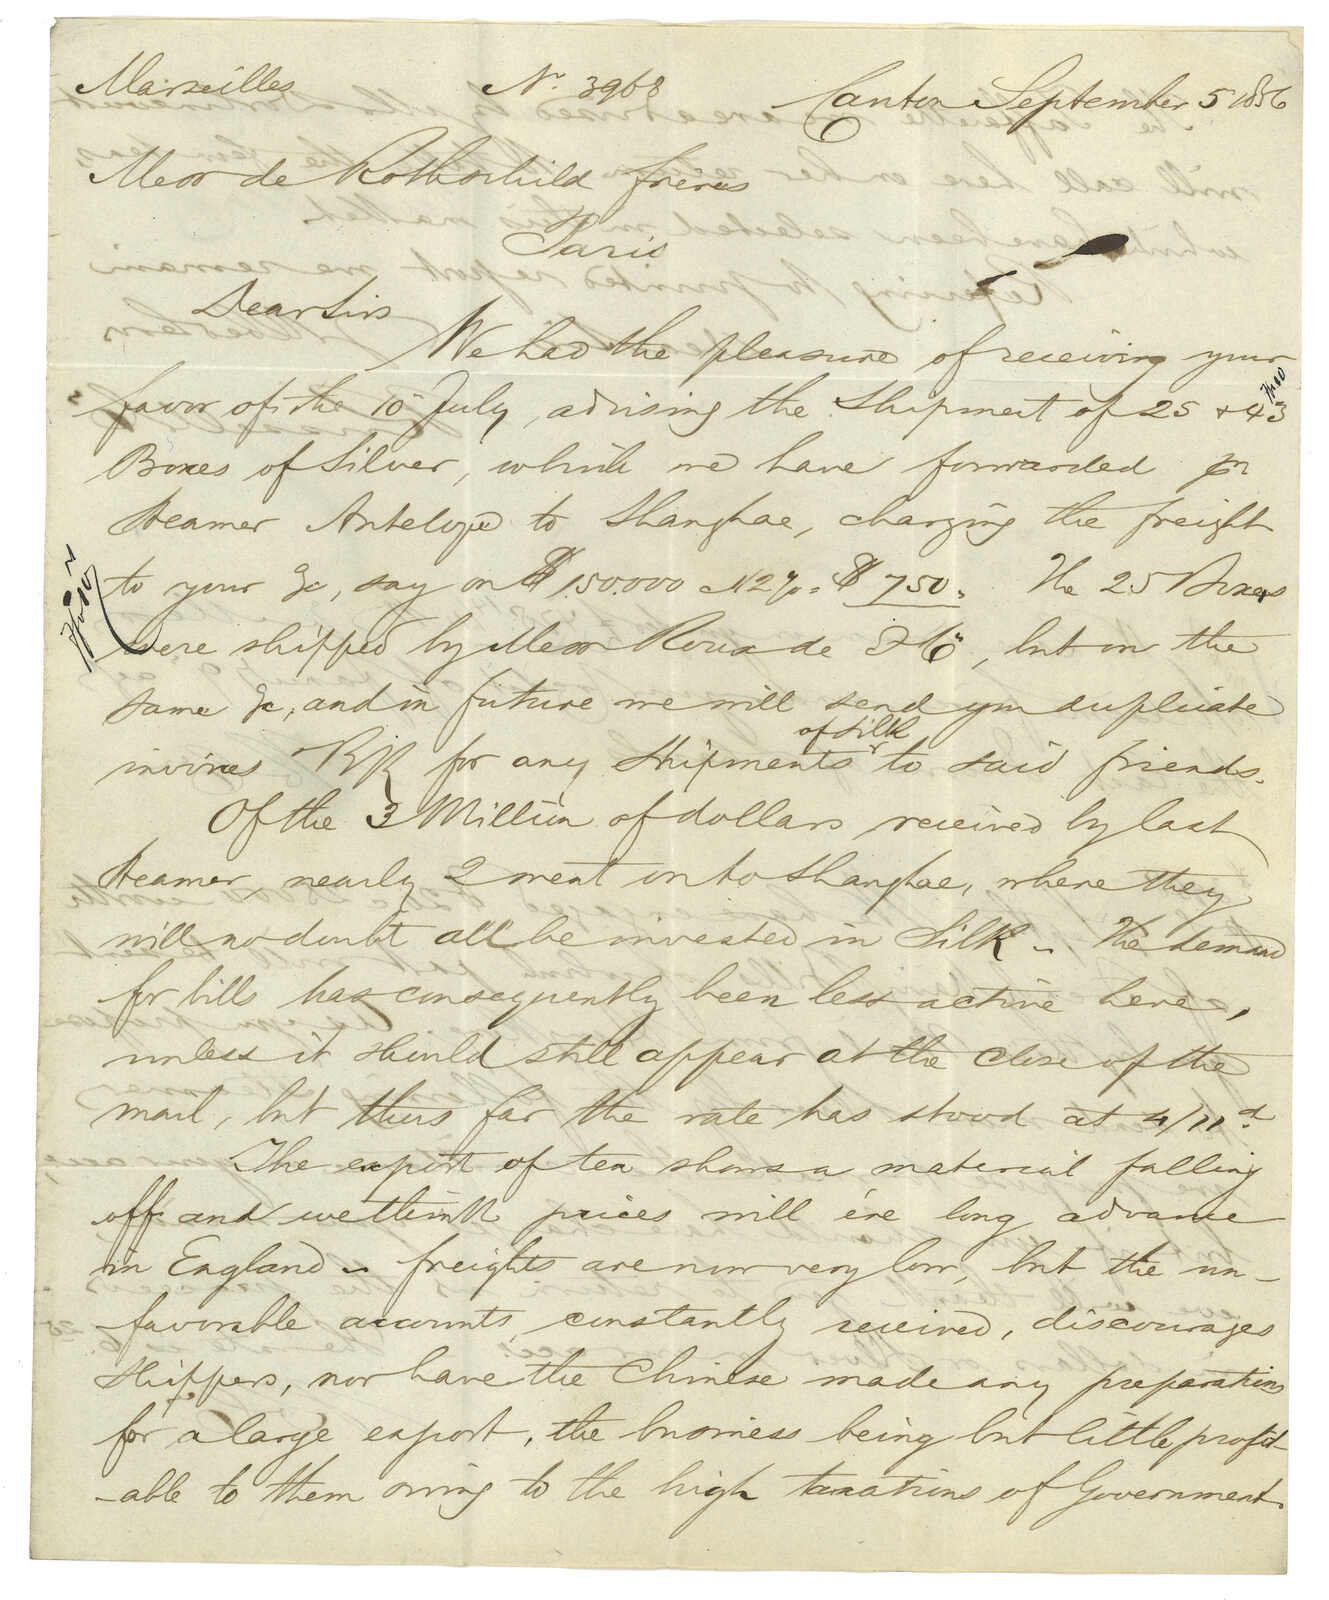 Marseilles Nr 3968 Canton September 5 1856
Messrs de Rothschild freres
Paris
Dear Sirs
We had the pleasure of receiving your
favor of the 10 July, advising the Shipment of 25 + 43
Boxes of Silver, which we have forwarded pr
Steamer Antelope to Shanghae, charging the freight
to your %c, say on $150.000 @ 1/2 % $ 750. The 25 Boxes
were shipped by Messrs Roux de F & Co, but on the
same %c, and in future we will send you duplicate
invoices for any Shipments of Silk to said friends.
Of the 3 Million of dollars received by last
Steamer, nearly 2 went on to Shanghae, where they
will no doubt all be invested in Silk - The demand
for bills has consequently been less active here,
unless it should still appear at the close of the
mail, but thus far the rate has stood at 4/11d
The export of tea shows a material falling
off and we think prices will ére long advance
in England - freights are now very low, but the un-
favorable accounts, constantly received, discourages
Shippers, nor have the Chinese made any preparations
for a large export, the business being but little profit-
-able to them owing to the high taxations of Government.